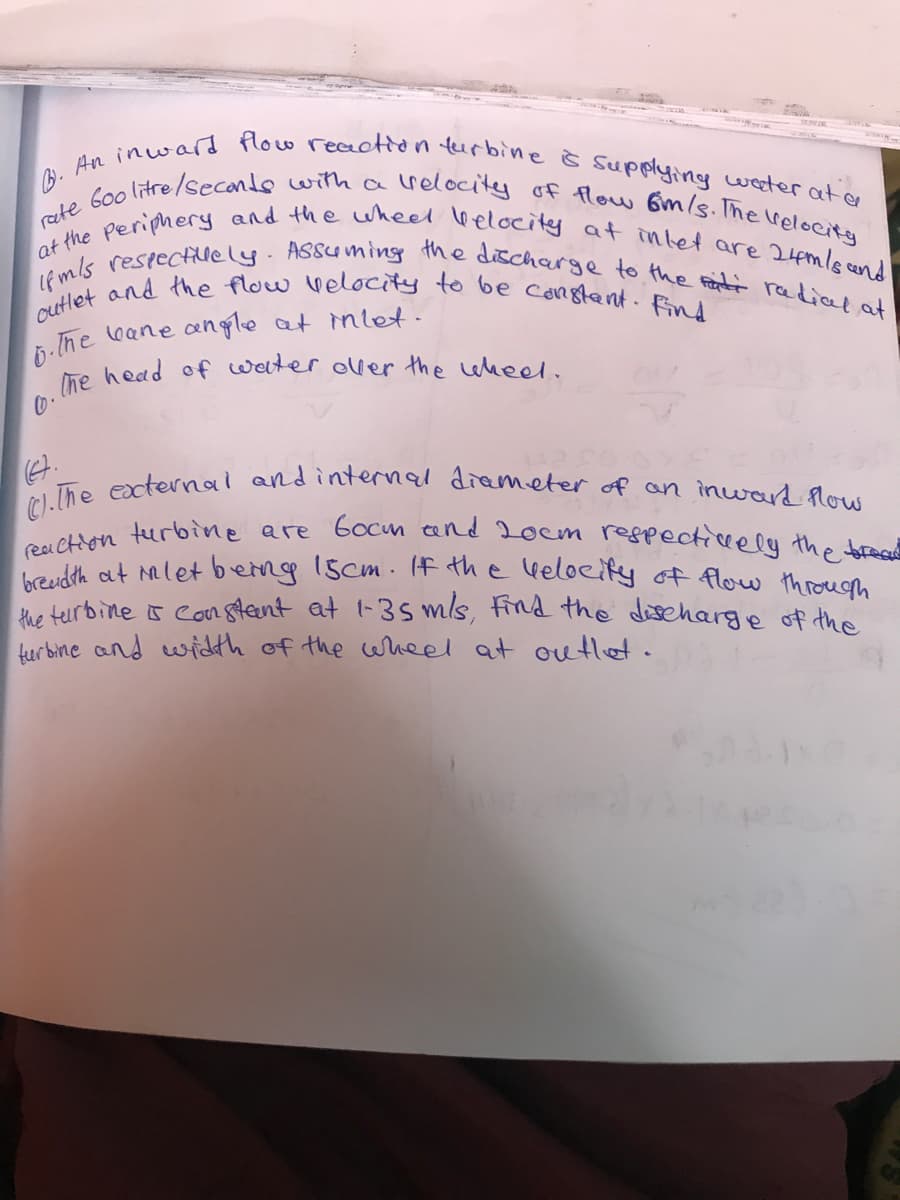 (B). An inward flow reaction turbine is supplying water at a
rate 600 litre/seconds with a velocity of flow 6m/s. The velocity
at the periphery and the wheel velocity at inlet are 24m/s and
18m/s respectively. Assuming the discharge to the radial, at
outlet and the flow velocity to be constant. Find
The vane angle at inlet.
The head of water over the wheel.
(C). The external and internal diameter of an inward flow
reaction turbine are 60cm and 20cm respectively the bread
breadth at inlet being 15cm. If the velocity of flow through
the turbine is constant at 1.35 m/s, find the discharge of the
turbine and width of the wheel at outlet.